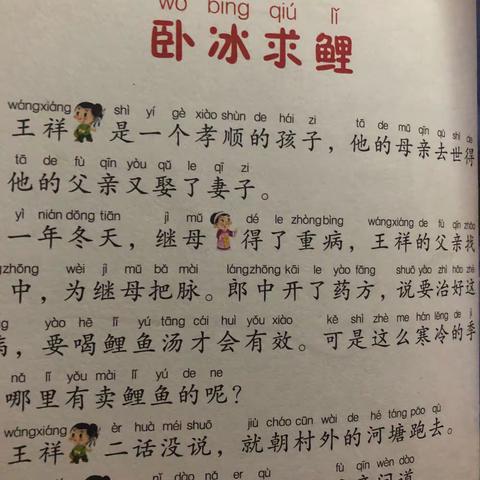 wò bīng qiú lǐ
卧冰求鲤
wángxiáng shì yí gè xiào shùn de hái zi tā de mǔ qīn qù shì de
王祥是一个孝顺的孩子，他的母亲去世得
tā de fù qīn yòu qǔ le qī zi
他的父亲又娶了妻子。
yì nián dōng tiān jì mǔ dé le zhòng bìng wángxiáng de fù qīn zhǎo
一年冬天，继母得了重病，王祥的父亲找
zhōng wèi jì mǔ bǎ mài láng zhōng kāi le yào fāng shuō yào zhì hǎo zhè
中，为继母把脉。郎中开了药方，说要治好这
yào hē lǐ yú tāng cái huì yǒu xiào kě shì zhè me hán lěng de jì
病，要喝鲤鱼汤才会有效。可是这么寒冷的季
nǎ lǐ yǒu mài lǐ yú de ne
哪里有卖鲤鱼的呢？
wángxiáng èr huà méi shuō jiù cháo cūn wài de hé táng pǎo qù
王祥二话没说，就朝村外的河塘跑去。
fù qīn wèn dào